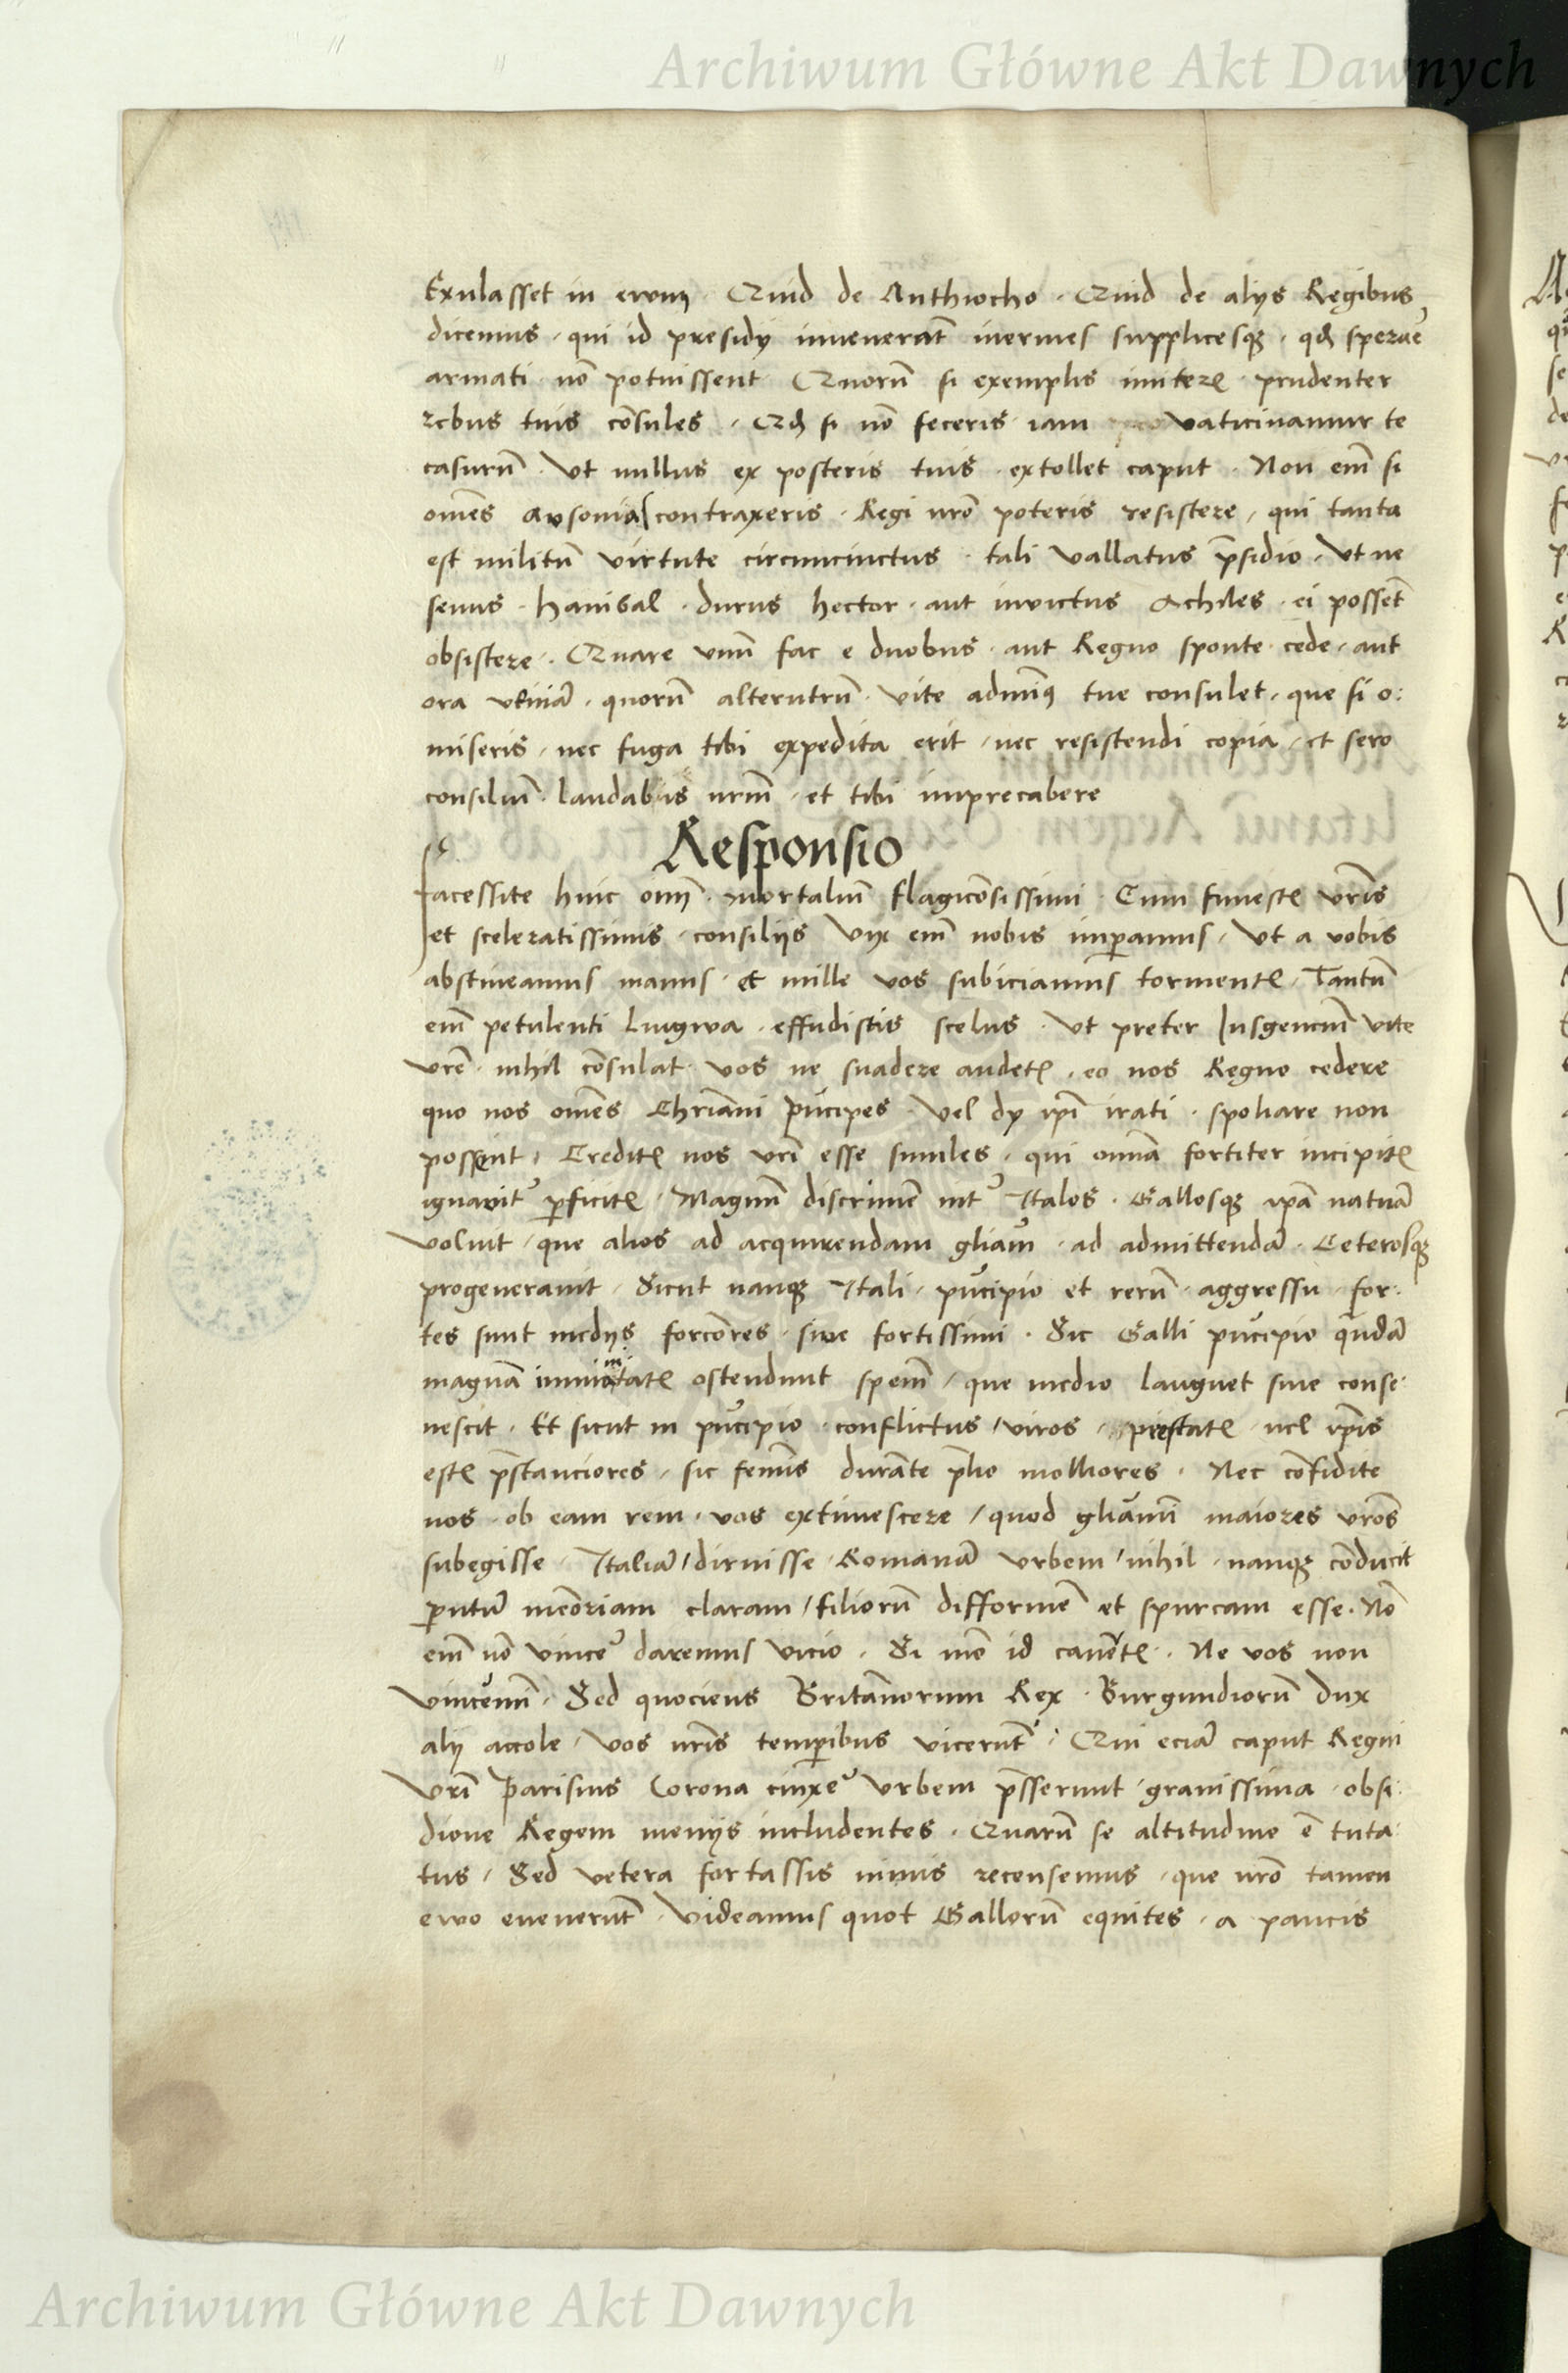 Archiwum Główne Akt Dawnych
Exulasset in evum · Quid de Anthiocho · Quid de alijs Regibus
dicemus · qui id presidij invenerūt inermes supplicesq₃ · qd sperare
armati nō potuissent Quorū si exemplis imiter̄ prudenter
rebus tuis cōsules · Qd si nō feceris iam vaticinamur te
casurū · Ut nullus ex posteris tuis · extollet caput · Non em̄ si
om̄es Ausonia contraxeris · Regi nr̄o poteris resistere, qui tanta
est militū virtute circumcinctus · tali vallatus p̄sidio · Ut ne
seuus · Hanibal · durus hector · aut invictus Achiles · ei possēt
obsistere · Quare unū fac e duobus · aut Regno sponte cede · aut
ora veniā · quorū alterutrū · vite adminꝰ tue consulet · que si o:
miseris · nec fuga tibi expedita erit · nec resistendi copia · et sero
consiliū laudabis nr̄m · et tibi imprecabere
Responsio
Facessite hinc om̄ · mortaliū flagiciōsissimi · Cum funestꝭ vr̄is
et sceleratissimis · consilijs Vix em̄ nobis imꝑamus · Ut a vobis
abstineamus manus · et mille vos subiciamus tormentꝭ · Tantū
em̄ petulenti Lingwa · effudistis scelus · Ut preter Iusgenciū vite
vr̄e · nihil cōsulat · vos ne suadere audetꝭ · eo nos Regno cedere
quo nos om̄es Chr̄iani prīcipes · vel dij ip̄i irati · spoliare non
possent · Creditꝭ nos vr̄i esse similes · qui omīa fortiter incipitꝭ
ignavit̉ ꝑficitꝭ · Magnū discrimē int̉ Italos · Gallosq₃ ip̄a natura
voluit · que alios ad acquirendam gl̄iam · ad admittendā · Ceterosq₃
progeneravit · Sicut nanq₃ Itali · prīcipio et rerū · aggressu · for:
tes sunt medijs forcōres · sive fortissimi · Sic Galli prīcipio quādā
magnā ostendunt spem̄ / que medio languet sive conse:
nescit · Et sicut in prīcipio · conflictus / viros · prestatꝭ vel ip̄is
estꝭ p̄stanciores · sic femīs durāte p̄lio molliores · Nec cōfidite
nos · ob eam rem · vos extimescere / quod maiores vr̄os
subegisse · Italiā / diruisse · Romanā Urbem / nihil · nanq₃ cōducit
memōriam claram / filiorū difformē et spurcam esse · Nō
em̄ nō vincẻ daremus vicio · Si mō id cavetꝭ · Ne vos non
Sed quociens Britānorum Rex · Burgundiorū dux
alij accole · vos nr̄is temꝑibus vicerūt · Qui eciā caput Regni
vr̄i Parisius Corona cinxẻ Urbem p̄sserunt / gravissima · obsi:
dione Regem menijs includentes · Quarū se altitudine ē tuta:
tus · Sed vetera fortassis nimis recensemus · que nr̄o tamen
ewo evenerūt · Videamus quot Gallorū equites · a paucis
Archiwum Główne Akt Dawnych